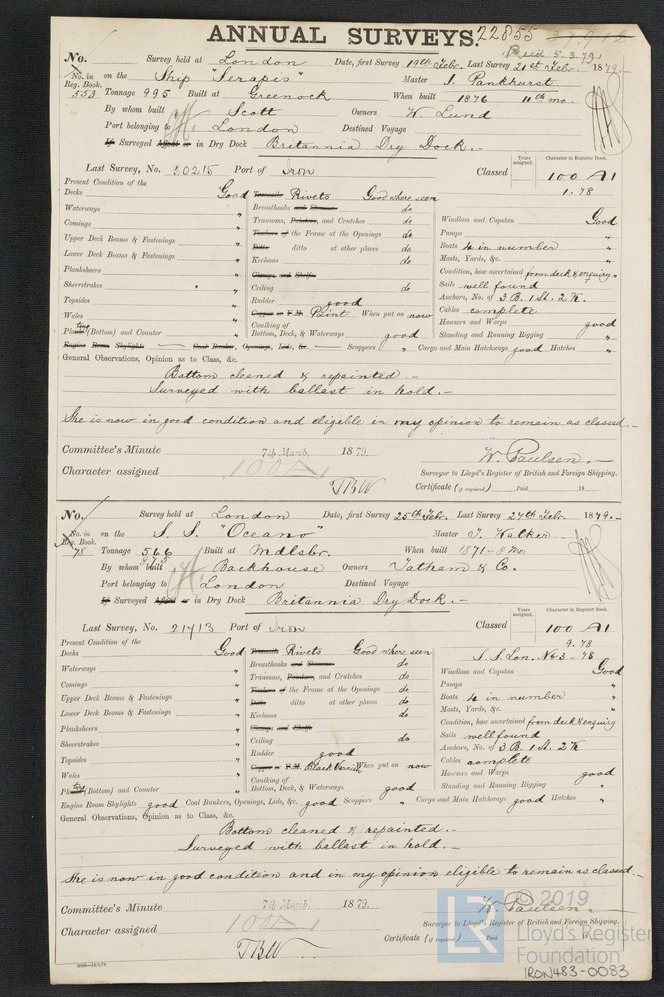 ANNUAL SURVEYS. 22855 27,912
Paid 5.3.79
No. Survey held at London Date, first Survey 19th Feb. Last Survey 21st Feb. 1879.
No. in Reg. Book. on the Ship "Serapis" Master J. Pankhurst
553 Tonnage 995 Built at Greenock When built 1876 11th mo.
By whom built Scott Owners W. Lund
Port belonging to London Destined Voyage
If Surveyed Afloat or in Dry Dock Britannia Dry Dock.-
Last Survey, No. 20215 Port of Iron Classed Years assigned. Character in Register Book. 100 A1
1.78
Present Condition of the
Decks Good Treenails Rivets Good where seen
Waterways " Breasthooks and Stemson do
Comings " Transoms, Pointers, and Crutches do Windlass and Capstan Good
Upper Deck Beams & Fastenings " Timbers of the Frame at the Openings do Pumps "
Lower Deck Beams & Fastenings " Ditto ditto at other places do Boats 4 in number "
Planksheers " Keelsons do Masts, Yards, &c. "
Sheerstrakes " Clamps and Shelfs Condition, how ascertained from deck & enquiry "
Topsides " Ceiling do Sails well found
Wales " Rudder good Anchors, No. of 3 B. 1 St. 2 K.
Plating (Bottom) and Counter " Copper or Y.M. Paint When put on now Cables complete
Caulking of Bottom, Deck, & Waterways good Hawsers and Warps good
Standing and Running Rigging "
Engine Room Skylights Coal Bunker, Openings, Lids, &c. Scuppers " Cargo and Main Hatchways good Hatches "
General Observations, Opinion as to Class, &c.
Bottom cleaned & repainted.-
Surveyed with ballast in hold.-
She is now in good condition and eligible in my opinion to remain as classed.-
Committee's Minute 7th March, 1879.
W. Paulsen.-
Character assigned 100 A1 Surveyor to Lloyd's Register of British and Foreign Shipping.
TBW Certificate (if required) Paid 18
No. Survey held at London Date, first Survey 25th Feb. Last Survey 27th Feb. 1879.-
No. in Reg. Book. on the S. S. "Oceano" Master J. Walker
78 Tonnage 566 Built at Mdlsbr. When built 1871 - 8 Mo:
875
By whom built Backhouse Owners Tatham & Co.
Port belonging to London Destined Voyage
If Surveyed Afloat or in Dry Dock Britannia Dry Dock.-
Last Survey, No. 21713 Port of Iron Classed Years assigned. Character in Register Book. 100 A1
9.78
Present Condition of the S.S. Lon. No 3 - 78
Decks Good Treenails Rivets Good where seen
Waterways " Breasthooks and Stemson do Windlass and Capstan Good
Comings " Transoms, Pointers, and Crutches do Pumps "
Upper Deck Beams & Fastenings " Timbers of the Frame at the Openings do Boats 4 in number "
Lower Deck Beams & Fastenings " Ditto ditto at other places do Masts, Yards, &c. "
Planksheers " Keelsons do Condition, how ascertained from deck & enquiry
Sheerstrakes " Clamps and Shelfs Sails well found
Topsides " Ceiling do Anchors, No. of 3 B. 1 St. 2 K
Wales " Rudder good Cables complete
Plating (Bottom) and Counter " Copper or Y.M. Black Varnish When put on now Hawsers and Warps good
Caulking of Bottom, Deck, & Waterways good Standing and Running Rigging "
Engine Room Skylights good Coal Bunkers, Openings, Lids, &c. good Scuppers " Cargo and Main Hatchways good Hatches "
General Observations, Opinion as to Class, &c.
Bottom cleaned & repainted.-
Surveyed with ballast in hold.-
She is now in good condition and in my opinion eligible to remain as classed.-
Committee's Minute 7th March, 1879.
W. Paulsen.
Character assigned 100 A1 Surveyor to Lloyd's Register of British and Foreign Shipping.
TBW Certificate (if required) Paid 18
© 2019
LR Lloyd's Register
Foundation
IRON483-0083